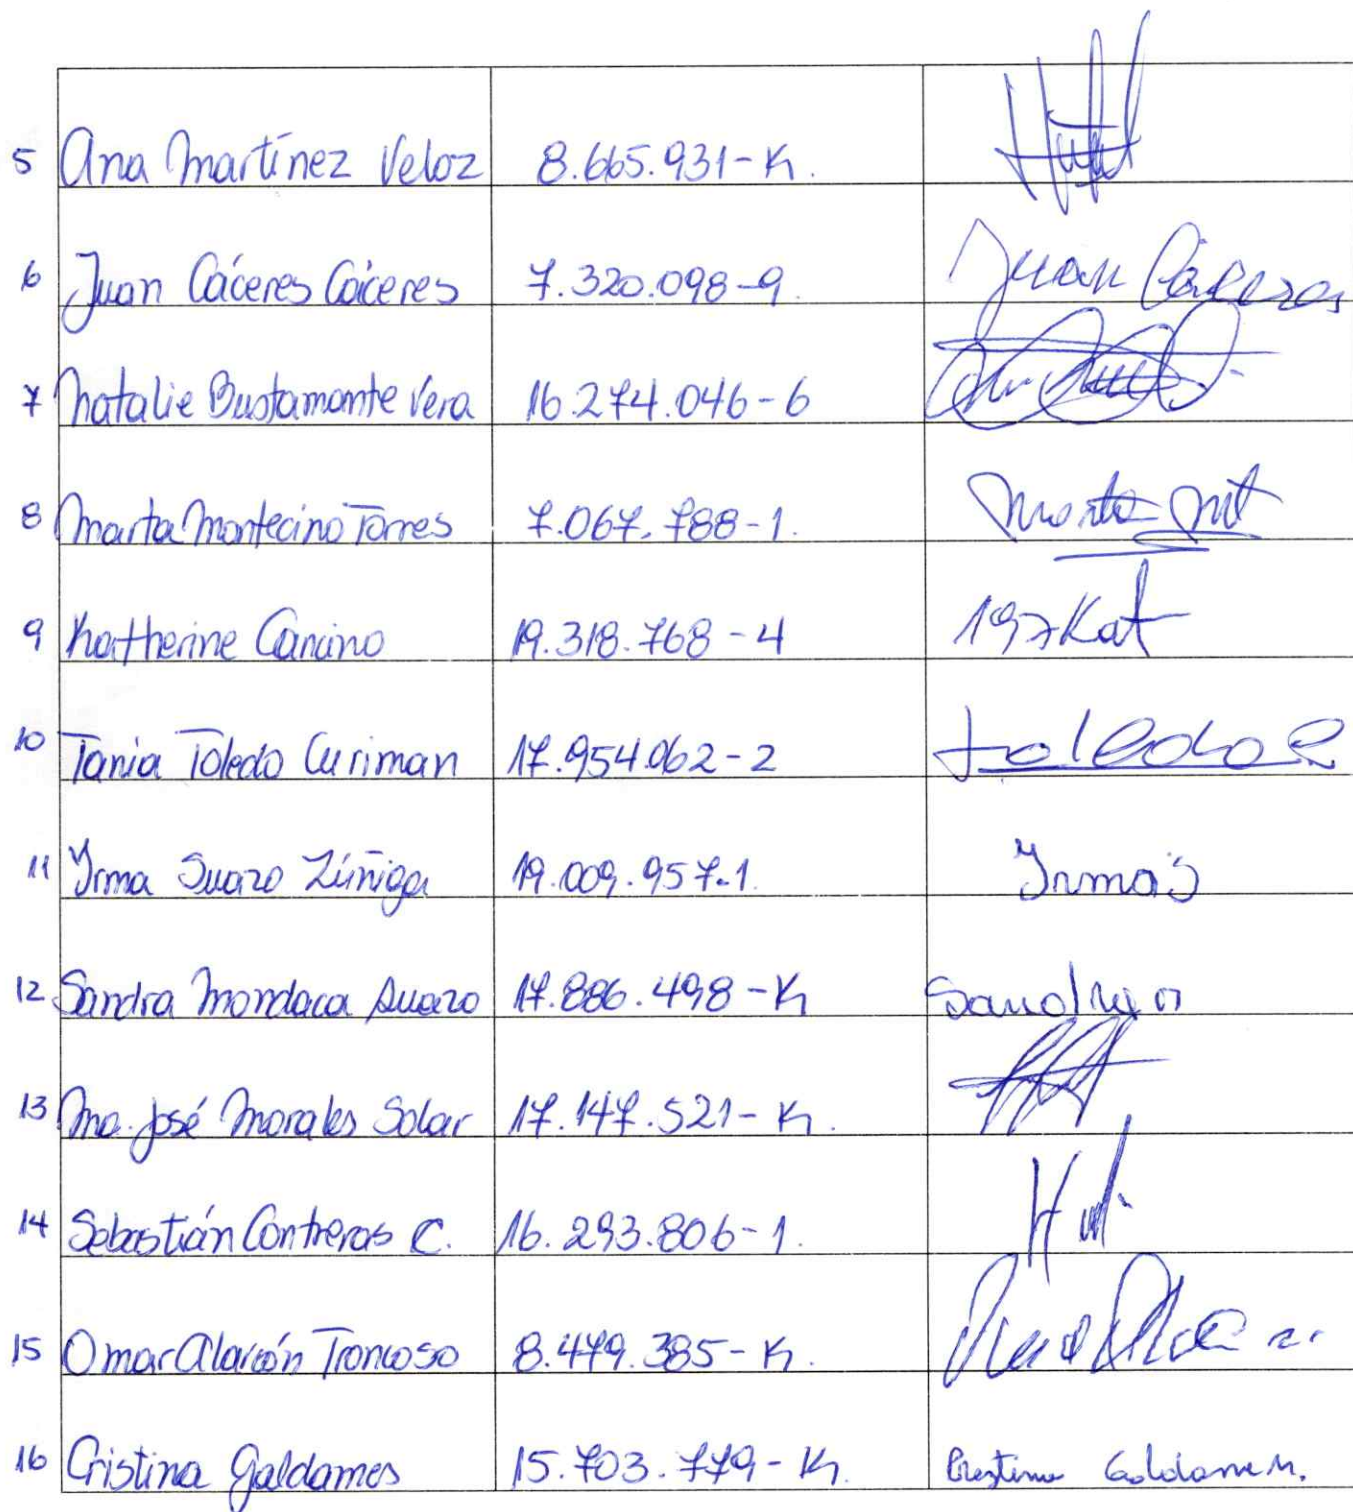 5 Ana Martínez Veloz 8.665.931-K.
6 Juan Cáceres Cáceres 7.320.098-9. Juan Cáceres
7 Natalie Bustamante Vera 16.274.046-6
8 Marta Montecino Torres 7.067.788-1. Marta
9 Katherine Cancino 19.318.768-4 197Kat
10 Tania Toledo Curiman 17.954.062-2 toledo
11 Yrma Suazo Zúñiga 19.009.957-1. Yrma S
12 Sandra Mondaca Suazo 17.886.498-K
13 Ma. José Morales Solar 17.147.521-K.
14 Sebastián Contreras C. 16.293.806-1.
15 Omar Alarcón Troncoso 8.479.385-K.
16 Cristina Galdames 15.703.779-K. Cristina Galdames.